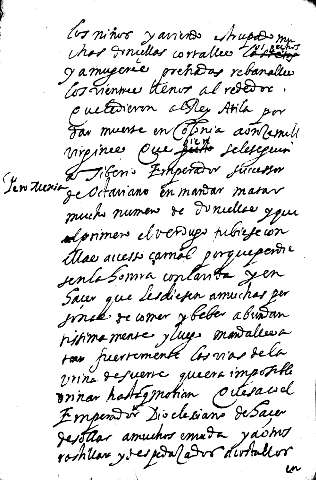 los niños y aviendo estrupado mu
chas donzellas cortalles los pechos
y a mugeres preñadas rebanalles
los vientres llenos al rededor.
que dieron al Rey Atila por
dar muerte en Colonia a onze mill
virgines que bien se le seguia
a Tiberio Emperador sucessor
de Octaviano en mandar matar
mucho numero de donzellas y que
el primero el verdugo tubiese con
ellas acesso carnal porque perdie
sen la honrra con la vida y en
hacer que les diesen a muchas per
sonas de comer y beber abundan
tissimamente y luego mandalles a
tar fuertemente las vias de la
urina de suerte que era imposible
orinar hasta q morian
Emperador Diocleciano de hacer
desollar a muchos en vida y a otros
rastillar y despedazados
en